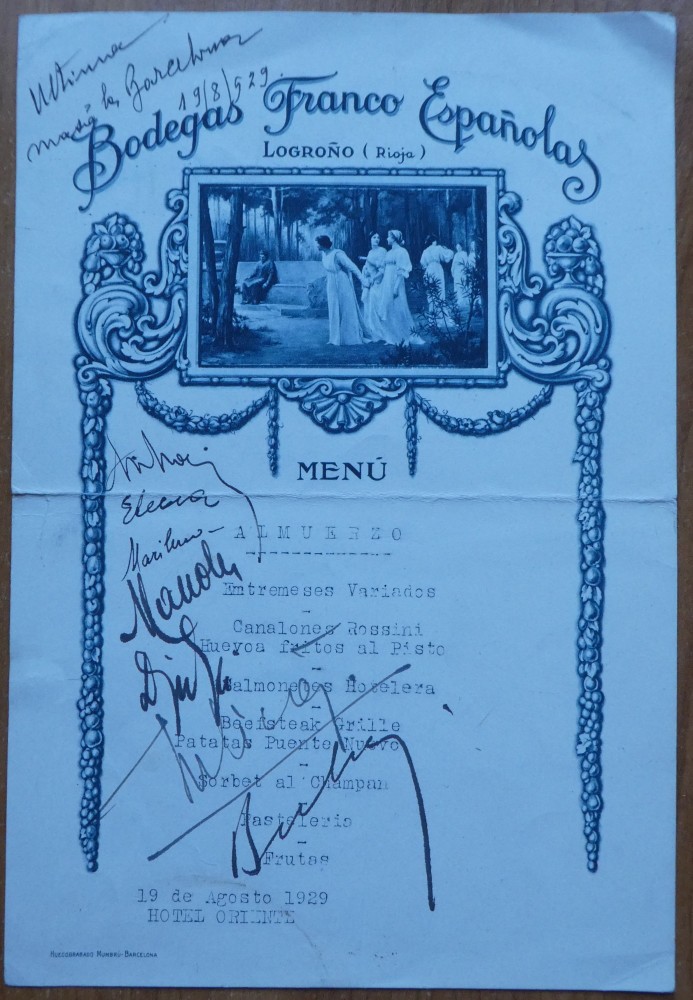 Ultima
masă la Barcelona
19/8/929
Bodegas Franco Españolas
LOGROÑO (Rioja)
MENÚ
Elena
ALMUERZO
Marilena
Entremeses Variados
Manolu
Canalones Rossini
Huevoa fritos al Pisto
Salmonetes Hotelera
Beefsteak Grille
Patatas Puente Nuevo
Sorbet al Champan
Pasteleria
Frutas
19 de Agosto 1929
HOTEL ORIENTE
HUECOGRABADO MUMBRÚ-BARCELONA